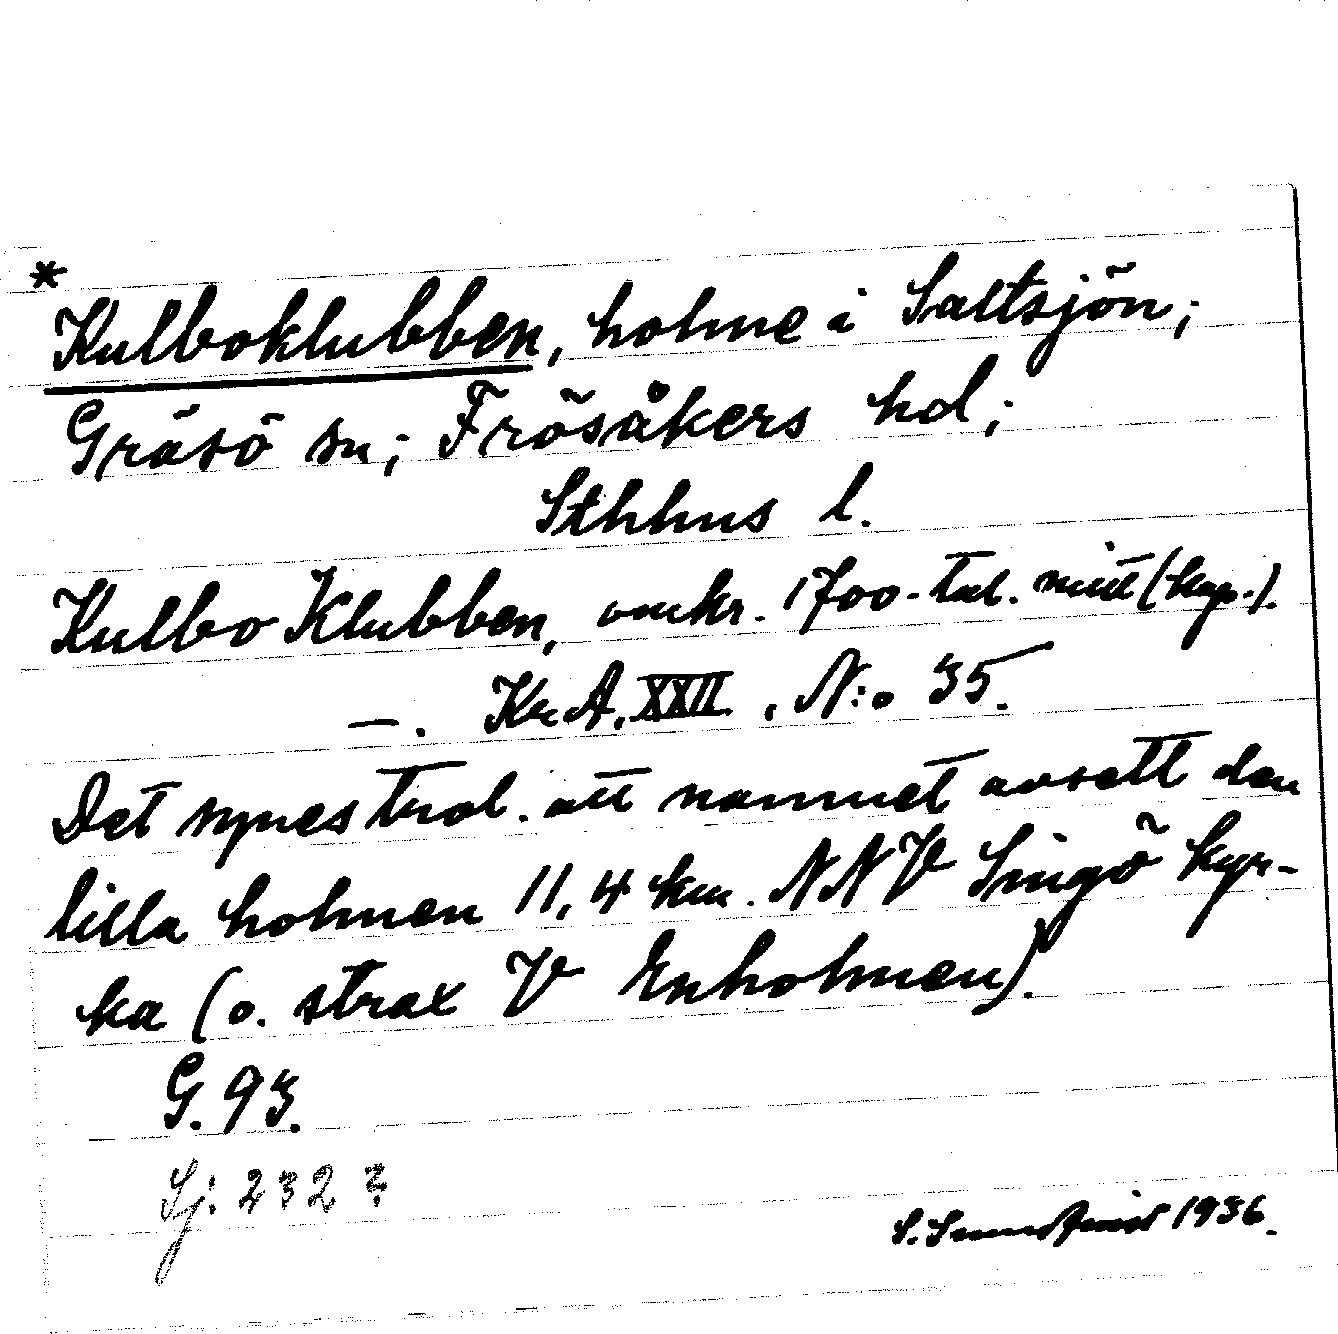 *
Kulboklubben, holme i Saltsjön;
Gräsö sn; Frösåkers hd;
Sthlms l.
Kulbo Klubben, omkr. 1700-tal. mitt (kop.).
—. Kr. A. XXII, N:o 35.
Det synes trol. att namnet avsett den
lilla holmen 11,4 km. NNV Singö kyr-
ka (o. strax V Enholmen).
G. 93.
Sj: 232 ?
S. 1936.